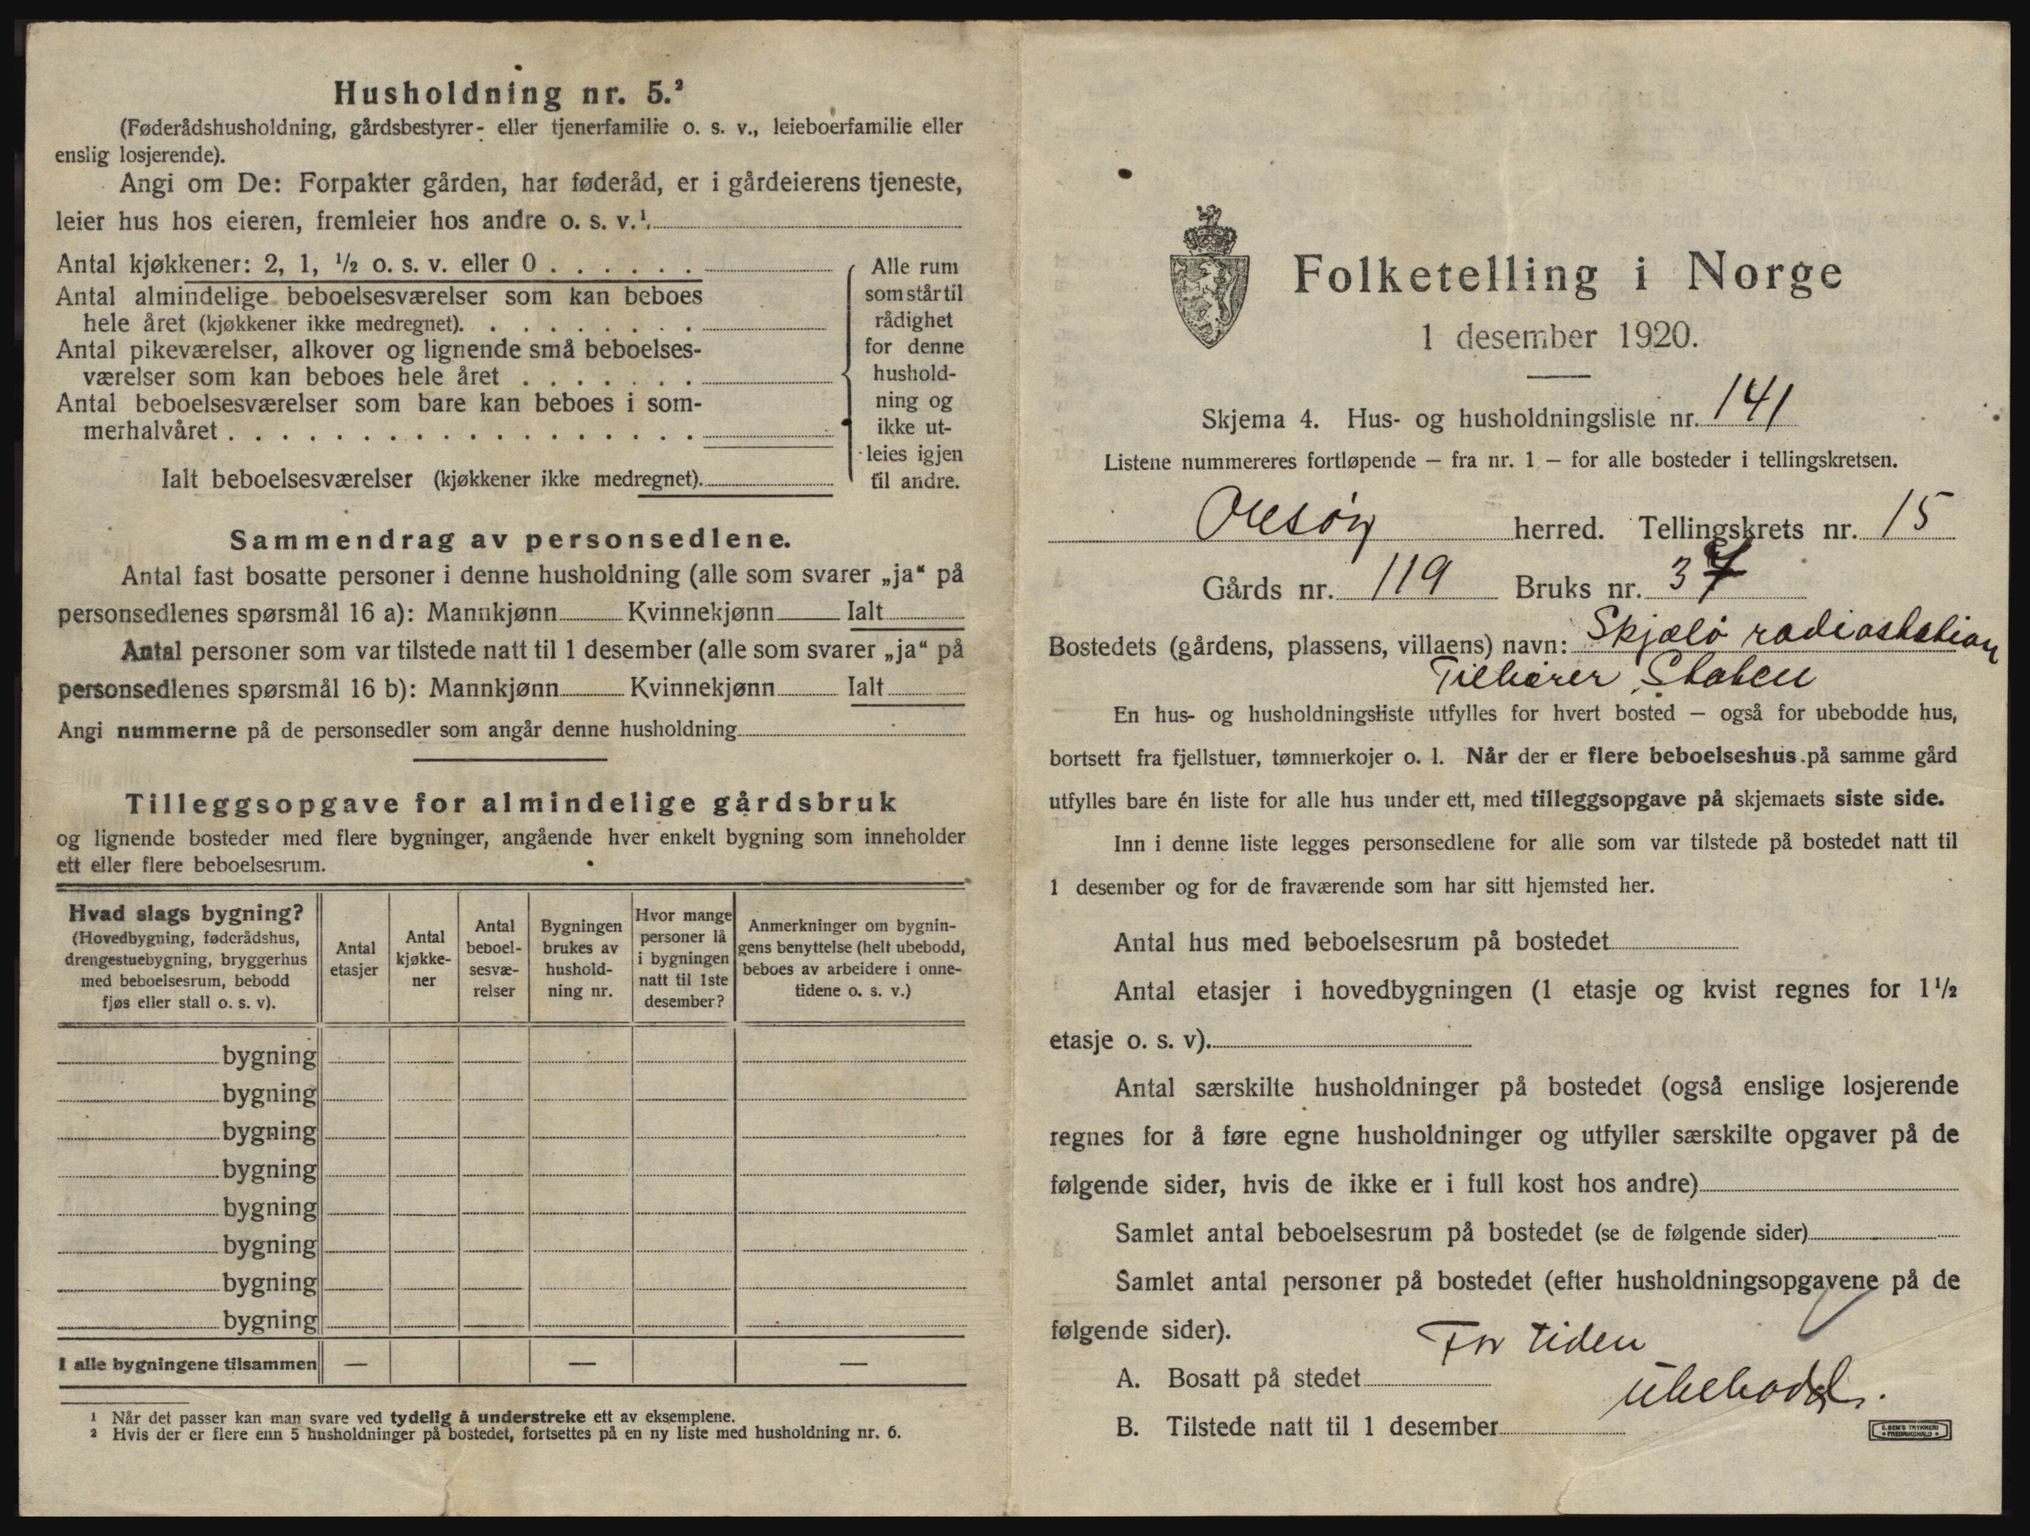 Husholdning nr. 5.²
(Føderådshusholdning, gårdsbestyrer- eller tjenerfamilie o. s. v., leieboerfamilie eller
enslig losjerende).
Angi om De: Forpakter gården, har føderåd, er i gårdeierens tjeneste,
leier hus hos eieren, fremleier hos andre o. s. v.¹
Antal kjøkkener: 2, 1, ½ o. s. v. eller 0 . . . . . .
Antal almindelige beboelsesværelser som kan beboes
hele året (kjøkkener ikke medregnet). . . . . . . . .
Antal pikeværelser, alkover og lignende små beboelses-
værelser som kan beboes hele året . . . . . . .
Antal beboelsesværelser som bare kan beboes i som-
merhalvåret . . . . . . . . . . . . . . . . . .
Ialt beboelsesværelser (kjøkkener ikke medregnet).
Alle rum
som står til
rådighet
for denne
hushold-
ning og
ikke ut-
leies igjen
til andre.
Sammendrag av personsedlene.
Antal fast bosatte personer i denne husholdning (alle som svarer „ja“ på
personsedlenes spørsmål 16 a): Mannkjønn Kvinnekjønn Ialt
Antal personer som var tilstede natt til 1 desember (alle som svarer „ja“ på
personsedlenes spørsmål 16 b): Mannkjønn Kvinnekjønn Ialt
Angi nummerne på de personsedler som angår denne husholdning
Tilleggsopgave for almindelige gårdsbruk
og lignende bosteder med flere bygninger, angående hver enkelt bygning som inneholder
ett eller flere beboelsesrum.
Hvad slags bygning?
(Hovedbygning, føderådshus,
drengestuebygning, bryggerhus
med beboelsesrum, bebodd
fjøs eller stall o. s. v).
Antal
etasjer
Antal
kjøkke-
ner
Antal
beboel-
sesvæ-
relser
Bygningen
brukes av
hushold-
ning nr.
Hvor mange
personer lå
i bygningen
natt til 1ste
desember?
Anmerkninger om bygnin-
gens benyttelse (helt ubebodd,
beboes av arbeidere i onne-
tidene o. s. v.)
bygning
bygning
bygning
bygning
bygning
bygning
bygning
bygning
I alle bygningene tilsammen — — —
¹ Når det passer kan man svare ved tydelig å understreke ett av eksemplene.
² Hvis der er flere enn 5 husholdninger på bostedet, fortsettes på en ny liste med husholdning nr. 6.
Folketelling i Norge
1 desember 1920.
Skjema 4. Hus- og husholdningsliste nr. 141
Listene nummereres fortløpende – fra nr. 1 – for alle bosteder i tellingskretsen.
Onsøy herred. Tellingskrets nr. 15
Gårds nr. 119 Bruks nr. 37
Bostedets (gårdens, plassens, villaens) navn: Skjælø radiostation
Tilhører Staten
En hus- og husholdningsliste utfylles for hvert bosted – også for ubebodde hus,
bortsett fra fjellstuer, tømmerkojer o. l. Når der er flere beboelseshus på samme gård
utfylles bare én liste for alle hus under ett, med tilleggsopgave på skjemaets siste side.
Inn i denne liste legges personsedlene for alle som var tilstede på bostedet natt til
1 desember og for de fraværende som har sitt hjemsted her.
Antal hus med beboelsesrum på bostedet
Antal etasjer i hovedbygningen (1 etasje og kvist regnes for 1½
etasje o. s. v).
Antal særskilte husholdninger på bostedet (også enslige losjerende
regnes for å føre egne husholdninger og utfyller særskilte opgaver på de
følgende sider, hvis de ikke er i full kost hos andre)
Samlet antal beboelsesrum på bostedet (se de følgende sider)
Samlet antal personer på bostedet (efter husholdningsopgavene på de
følgende sider).
For tiden
A. Bosatt på stedet
ubebodd.
B. Tilstede natt til 1 desember
E. SEM'S TRYKKERI
FREDRIKSHALD